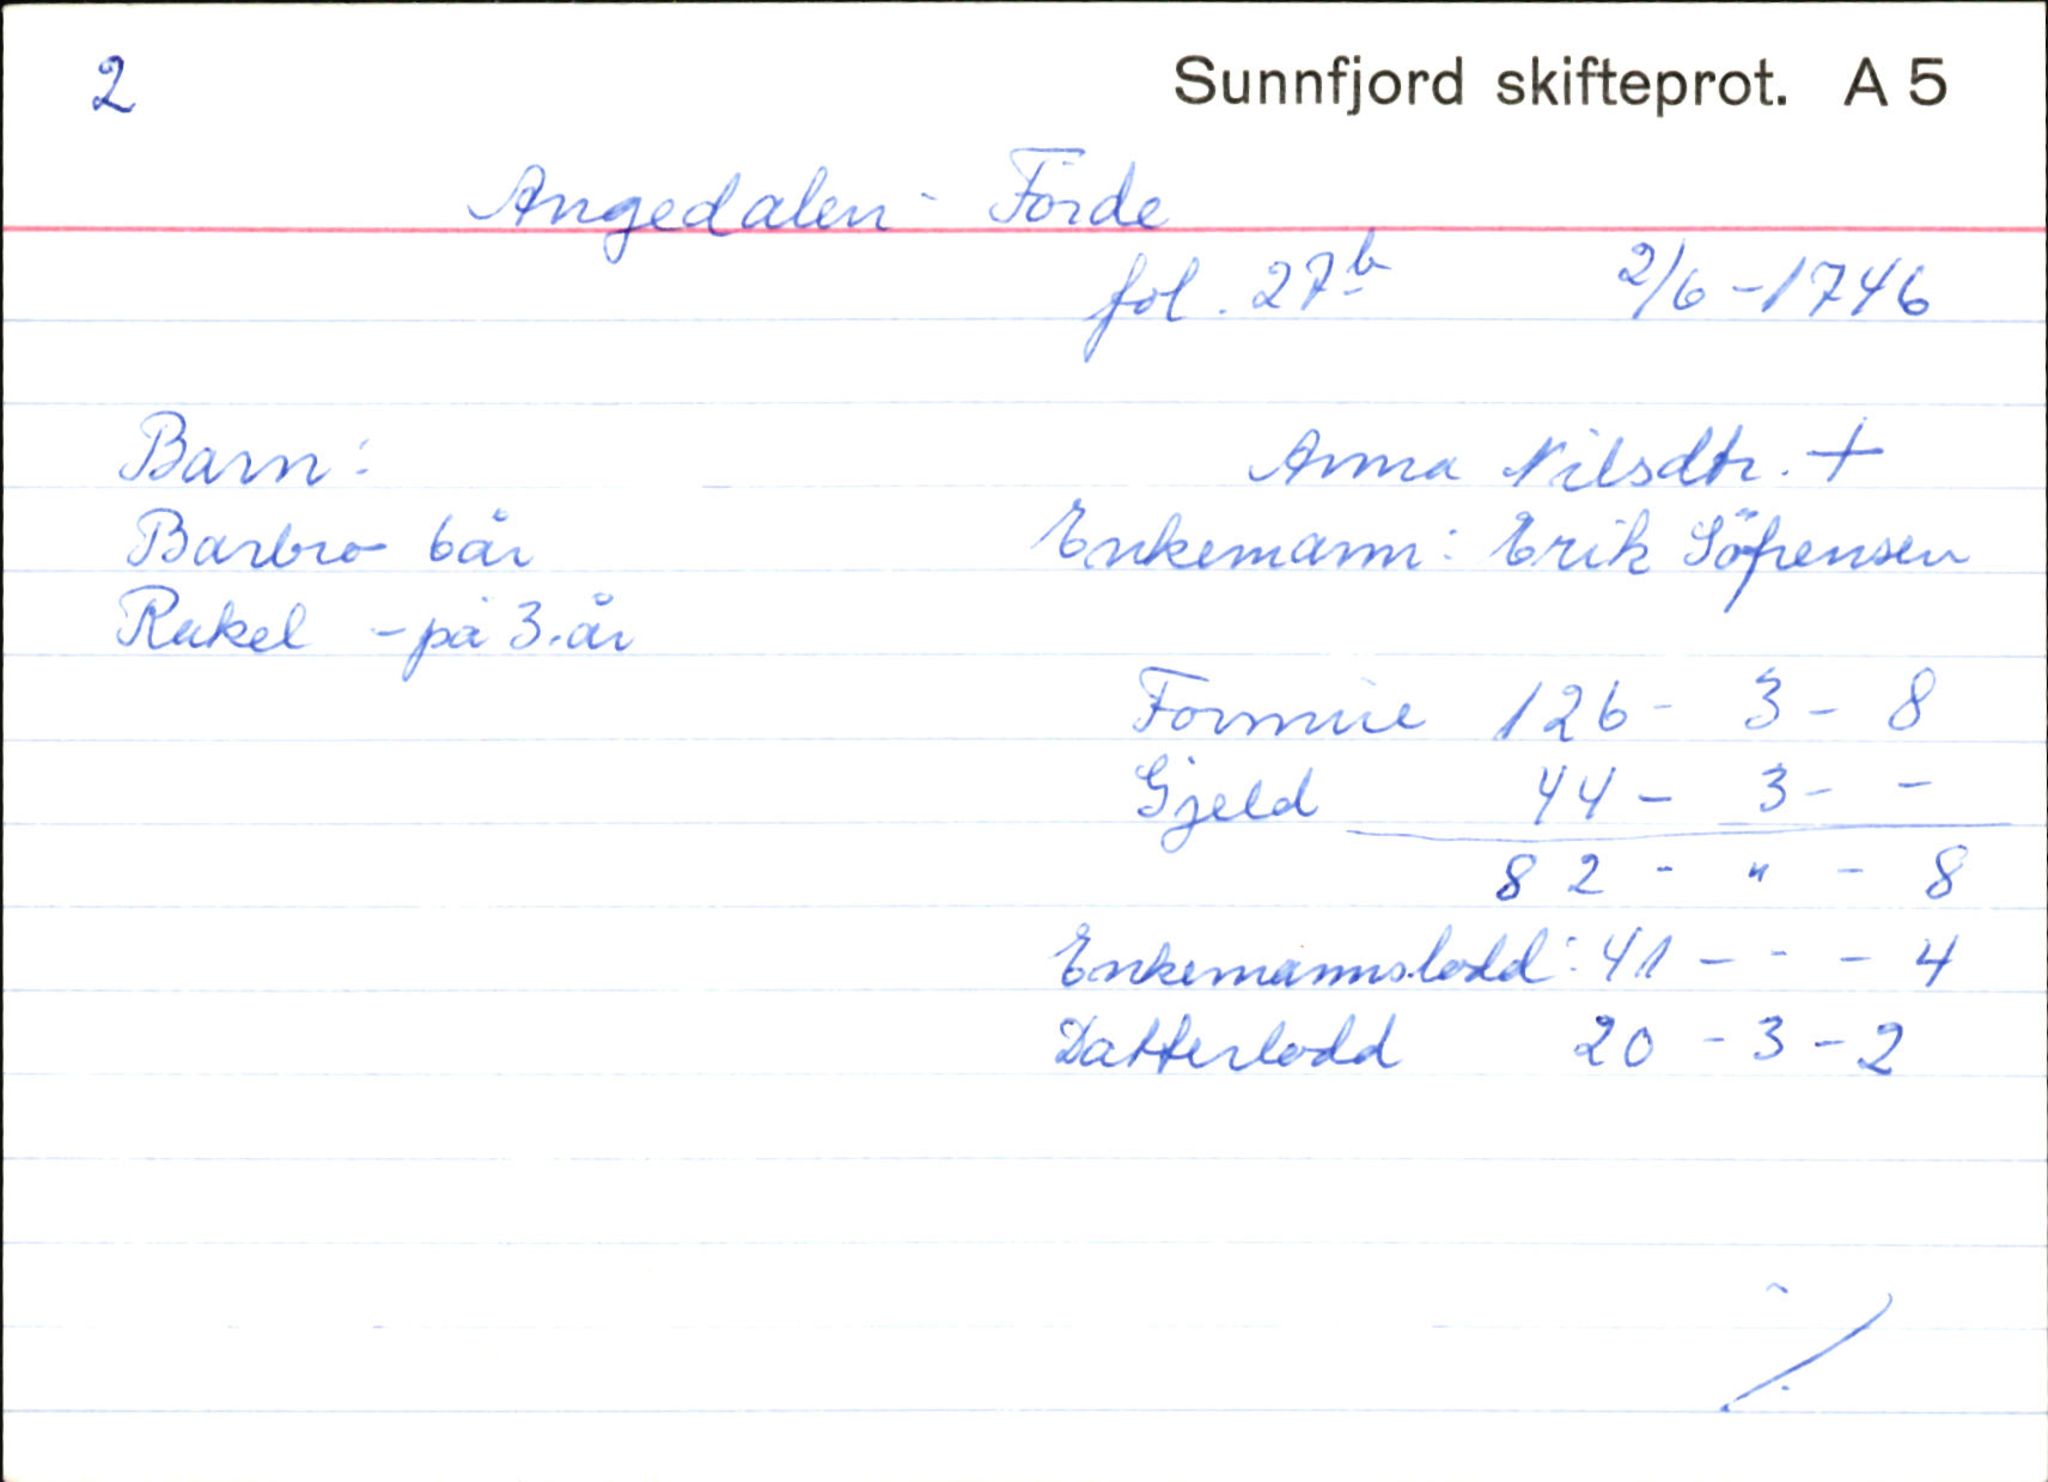 2
Sunnfjord skifteprot. A 5
Angedalen - Förde
fol. 27b 2/6 - 1746
Barn:
Barbro 6 år
Rakel - på 3. år
Anna Nilsdtr. +
Enkemann: Erik Söfrensen
Formue 126 - 3 - 8
Gjeld 44 - 3 - -
82 - " - 8
Enkemannslodd: 41 - - - 4
Datterlodd 20 - 3 - 2